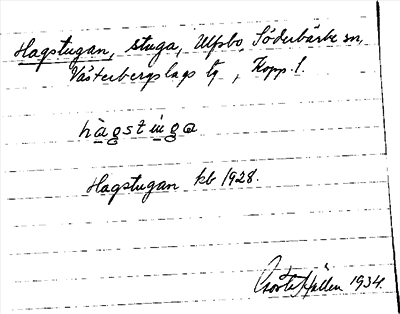 Hagstugan, stuga, Ulfsbo, Söderbärke sn,
Västerbergslags tg, Kopp. l.
hàgstuga
Hagstugan kb 1928.
Hallén 1934.